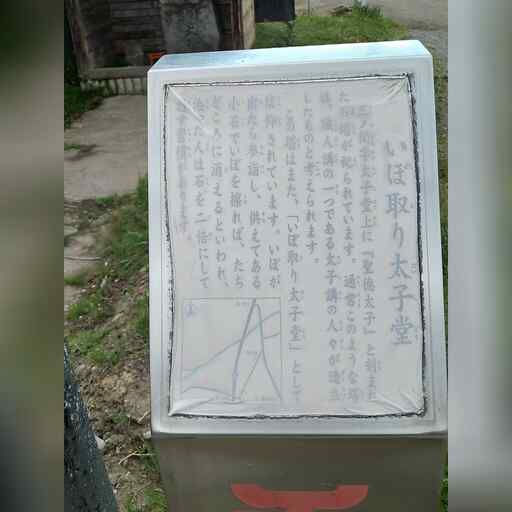 いぼ取り太子堂
太子堂上に『聖徳太子』と刻まれ
た石塔が祀られています。通常このような塔
は、職人講の一つである太子講の人々が造立
したものと考えられます。
この塔はまた、「いぼ取り太子堂」として
信仰されています。いぼが
出たら参詣し、供えてある
小石でいぼを擦れば、たち
どころに消えるといわれ、
治った人は石を二倍にして
があります。